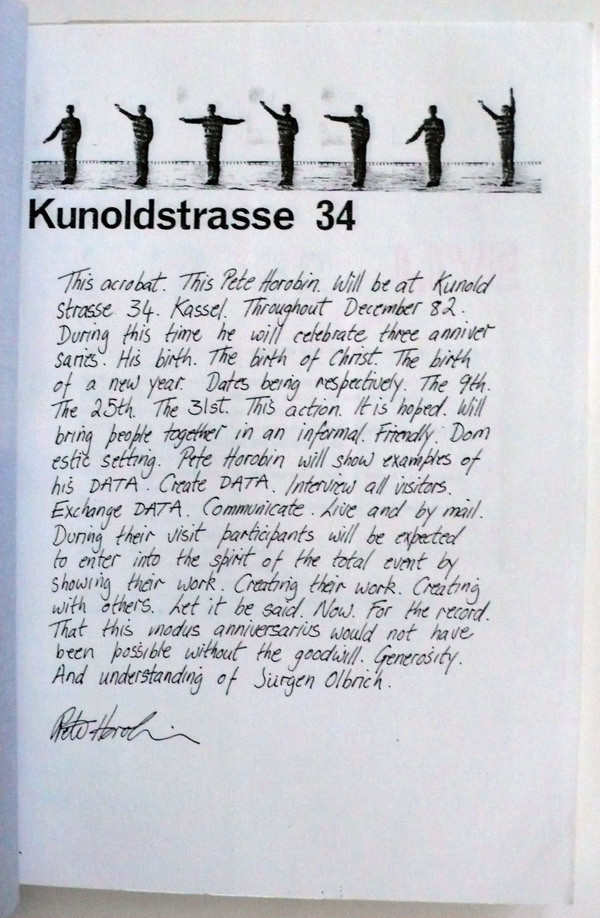 Kunoldstrasse 34
This acrobat. This Pete Horobin. Will be at Kunold
strasse 34. Kassel. Throughout December 82.
During this time he will celebrate three anniver
saries. His birth. The birth of Christ. The birth
of a new year. Dates being respectively. The 9th.
The 25th. The 31st. This action. It is hoped. Will
bring people together in an informal. Friendly. Dom
estic setting. Pete Horobin will show examples of
his DATA. Create DATA. Interview all visitors.
Exchange DATA. Communicate. Live and by mail.
During their visit participants will be expected
to enter into the spirit of the total event by
showing their work. Creating their work. Creating
with others. Let it be said. Now. For the record.
That this modus anniversarius would not have
been possible without the goodwill. Generosity.
And understanding of Jürgen Olbrich.
Pete Horobin